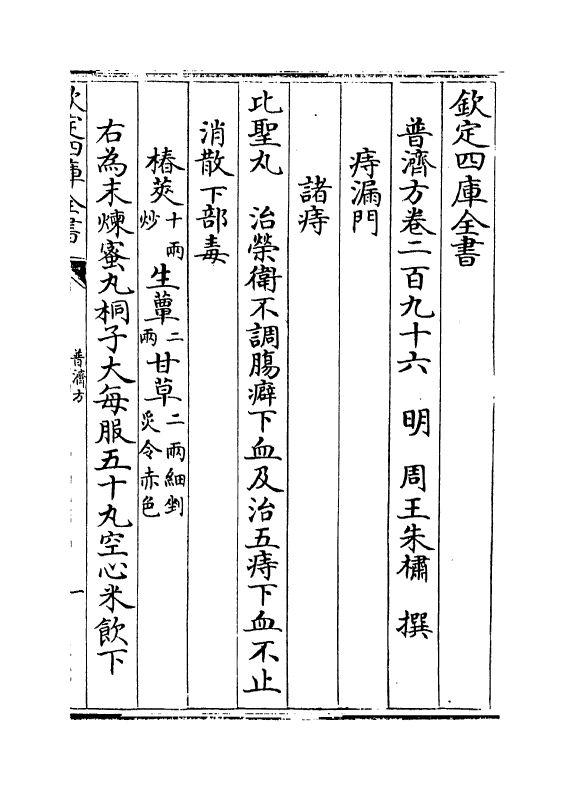 欽定四庫全書
普濟方卷二百九十六　明　周王朱橚　撰
痔漏門
諸痔
比聖丸　治榮衛不調腸癖下血及治五痔下血不止
消散下部毒
椿莢十兩炒生蕈二兩甘草二兩細剉炙令赤色
右為末煉蜜丸桐子大每服五十丸空心米飲下
欽定四庫全書
普濟方
一